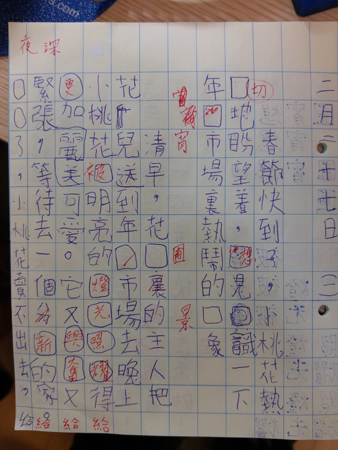 二月三十七日
春節快到了，小桃花熱
切地盼望着，想見識一下
年市場裏熱鬧的象
宵 景
清早，花圃的主人把
花兒送到年市場去晚上
小桃花被明亮的燈光照耀得
更加麗美可愛。它又興奮又
緊張，等待去一個新的家
夜深
了，小桃花賣不出去，
給 給